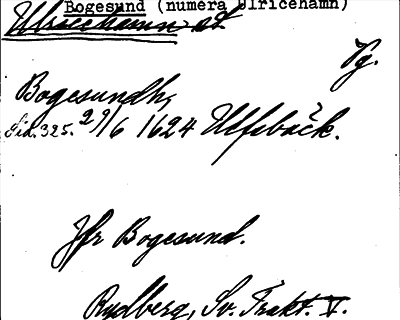 Bogesund (numera Ulricehamn)
Ulricehamn st.
Vg.
Bogesundh,
Sid. 325. 29/6 1624 Ulfsbäck.
Jfr Bogesund.
Rydberg, Sv. Trakt. V.